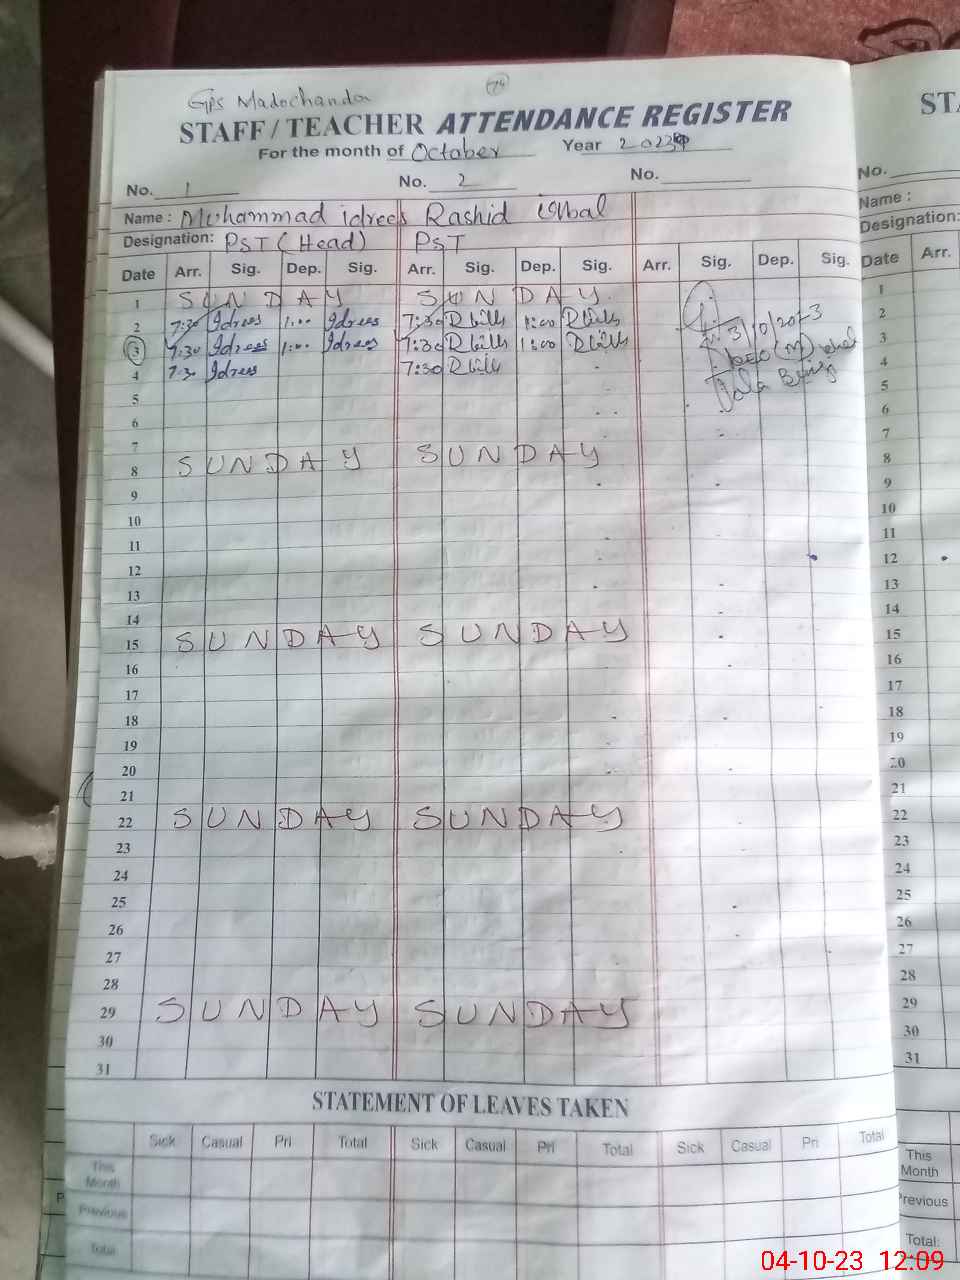 Gps Madochanda
STAFF / TEACHER ATTENDANCE REGISTER
For the month of October Year 2023
No. 1 No. 2 No.
Name : Muhammad idrees Rashid iqbal
Designation: PST (Head) PST
Date Arr. Sig. Dep. Sig. Arr. Sig. Dep. Sig. Arr. Sig. Dep. Sig.
1 SUNDAY SUNDAY
2 7:30 Idrees 1:00 Idrees 7:30 1:00
3 7:30 Idrees 1:00 Idrees 7:30 1:00
3/10/2023
4 7:30 Idrees 7:30
5
6
7
8 SUNDAY SUNDAY
9
10
11
12
13
14
15 SUNDAY SUNDAY
16
17
18
19
20
21
22 SUNDAY SUNDAY
23
24
25
26
27
28
29 SUNDAY SUNDAY
30
31
STATEMENT OF LEAVES TAKEN
Sick Casual Pri Total Sick Casual Pri Total Sick Casual Pri Total
This Month
Previous
Total
ST
No.
Name :
Designation:
Date Arr.
1
2
3
4
5
6
7
8
9
10
11
12
13
14
15
16
17
18
19
20
21
22
23
24
25
26
27
28
29
30
31
This Month
Previous
Total:
04-10-23 12:09